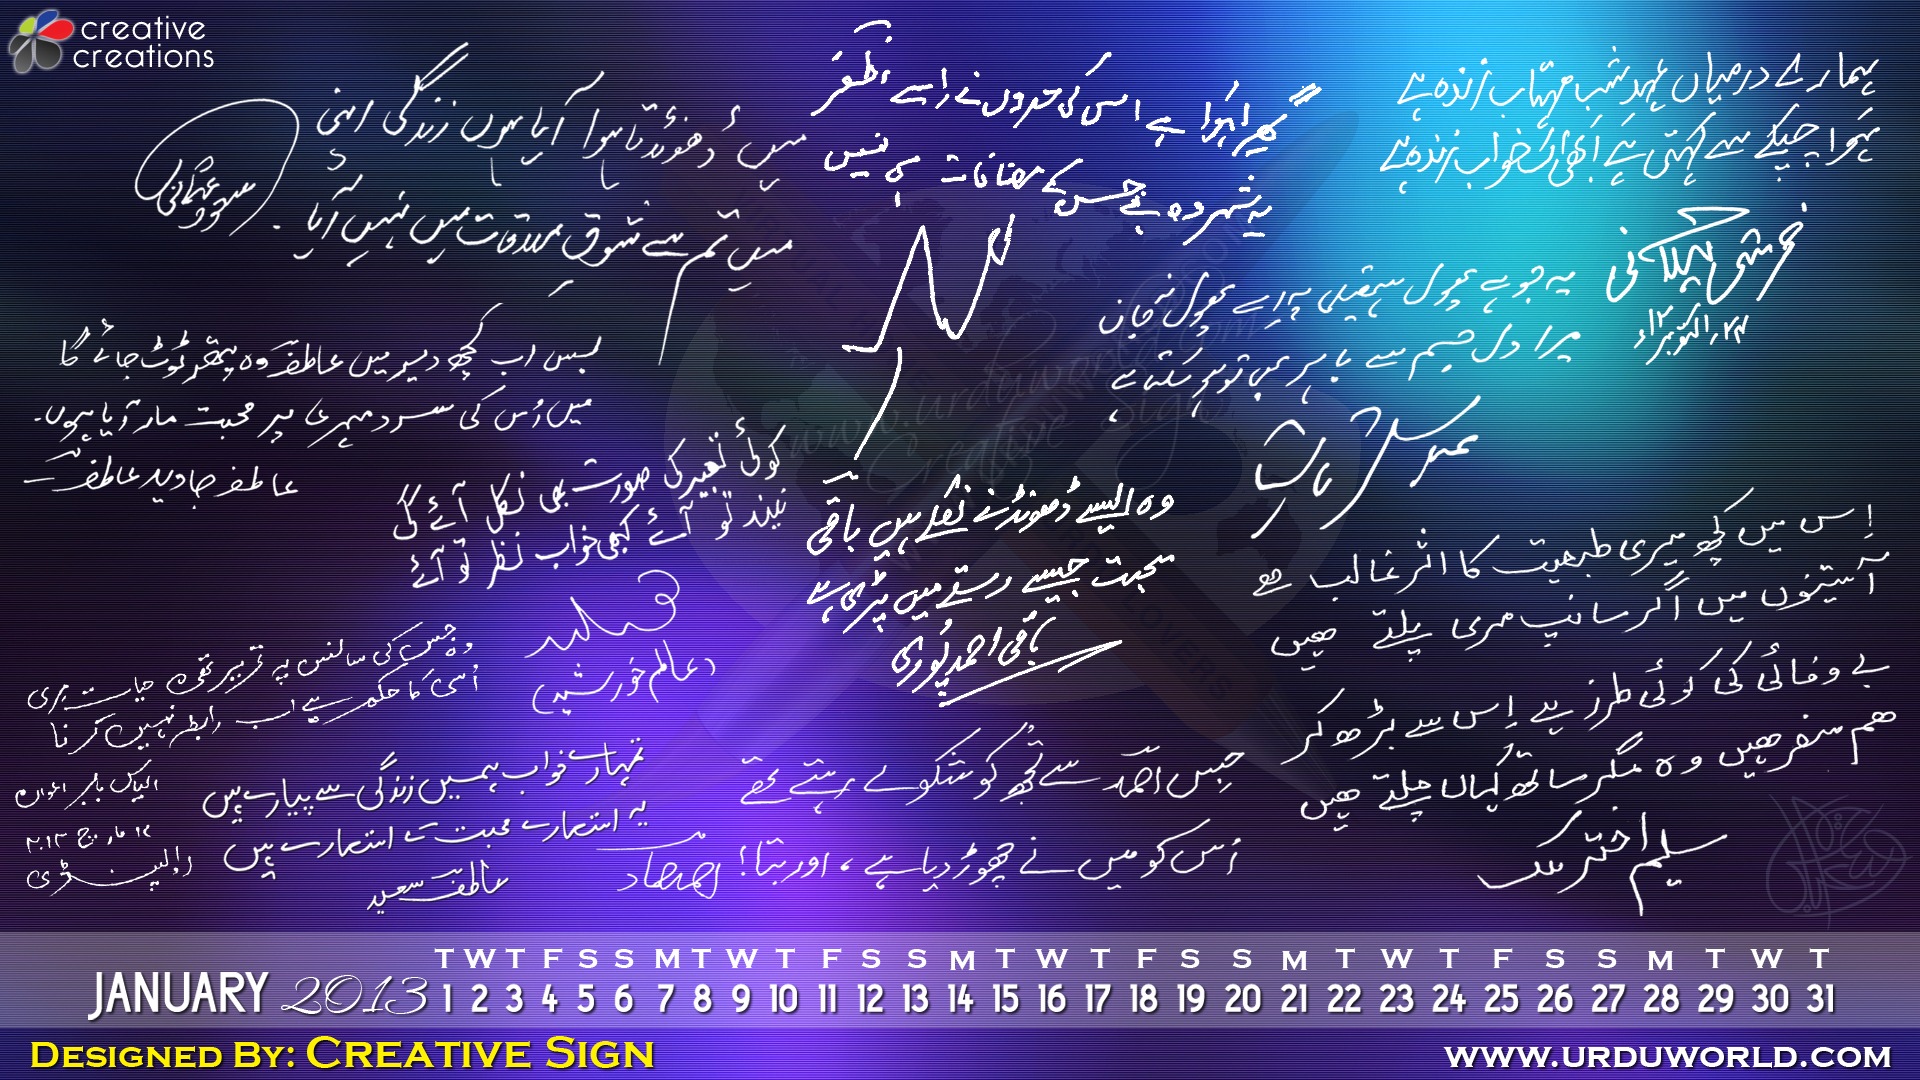 creative
creations
ہمارے درمیاں عہدِ شبِ مہتاب زندہ ہے
ہوا چپکے سے کہتی ہے ابھی اک خواب زندہ ہے
گھیرا ہوا ہے اس کی حدوں نے اسے ظفر
یہ شہر وہ ہے جس کے مضافات ہی نہیں
میں ڈھونڈتا ہوا آیا ہوں زندگی اپنی
میں تم سے شوقِ ملاقات میں نہیں آیا ۔
سعود عثمانی
یہ جو ہے پھول ہتھیلی پہ اسے پھول نہ جان
میرا دل جسم سے باہر بھی تو ہو سکتا ہے
عباس تابش
بس اب کچھ دیر میں عاطف وہ پتھر ٹوٹ جائے گا
میں اُس کی سرد مہری پر محبت مار آیا ہوں۔
عاطف جاوید عاطف
کوئی تعبیر کی صورت بھی نکل آئے گی
نیند تو آئے کبھی خواب نظر تو آئے
وہ ایسے ڈھونڈنے نکلے ہیں باقی
محبت جیسے رستے میں پڑی ہے
باقی احمد پوری
اِس میں کچھ میری طبیعت کا اثر غالب ھے
آستینوں میں اگر سانپ مری پلتے ھیں
بے وفائی کی کوئی طرز ہے اِس سے بڑھ کر
ھم سفر ھیں وہ مگر ساتھ کہاں چلتے ھیں
سلیم اختر ملک
وہ جس کی سانس پہ تحریر تھی حیات مری
اُسی کا حکم ہے اب رابطہ نہیں کرنا
الیاس بابر اعوان
راولپنڈی
تمہارے خواب ہمیں زندگی سے پیارے ہیں
یہ استعارے محبت کے استعارے ہیں
عاطف سعید
جس احمد سے تُجھ کو شکوے رہتے تھے
اُس کو میں نے چھوڑ دیا ہے ، اور بتا!
JANUARY 2013
T W T F S S M T W T F S S M T W T F S S M T W T F S S M T W T
1 2 3 4 5 6 7 8 9 10 11 12 13 14 15 16 17 18 19 20 21 22 23 24 25 26 27 28 29 30 31
DESIGNED BY: CREATIVE SIGN
WWW.URDUWORLD.COM